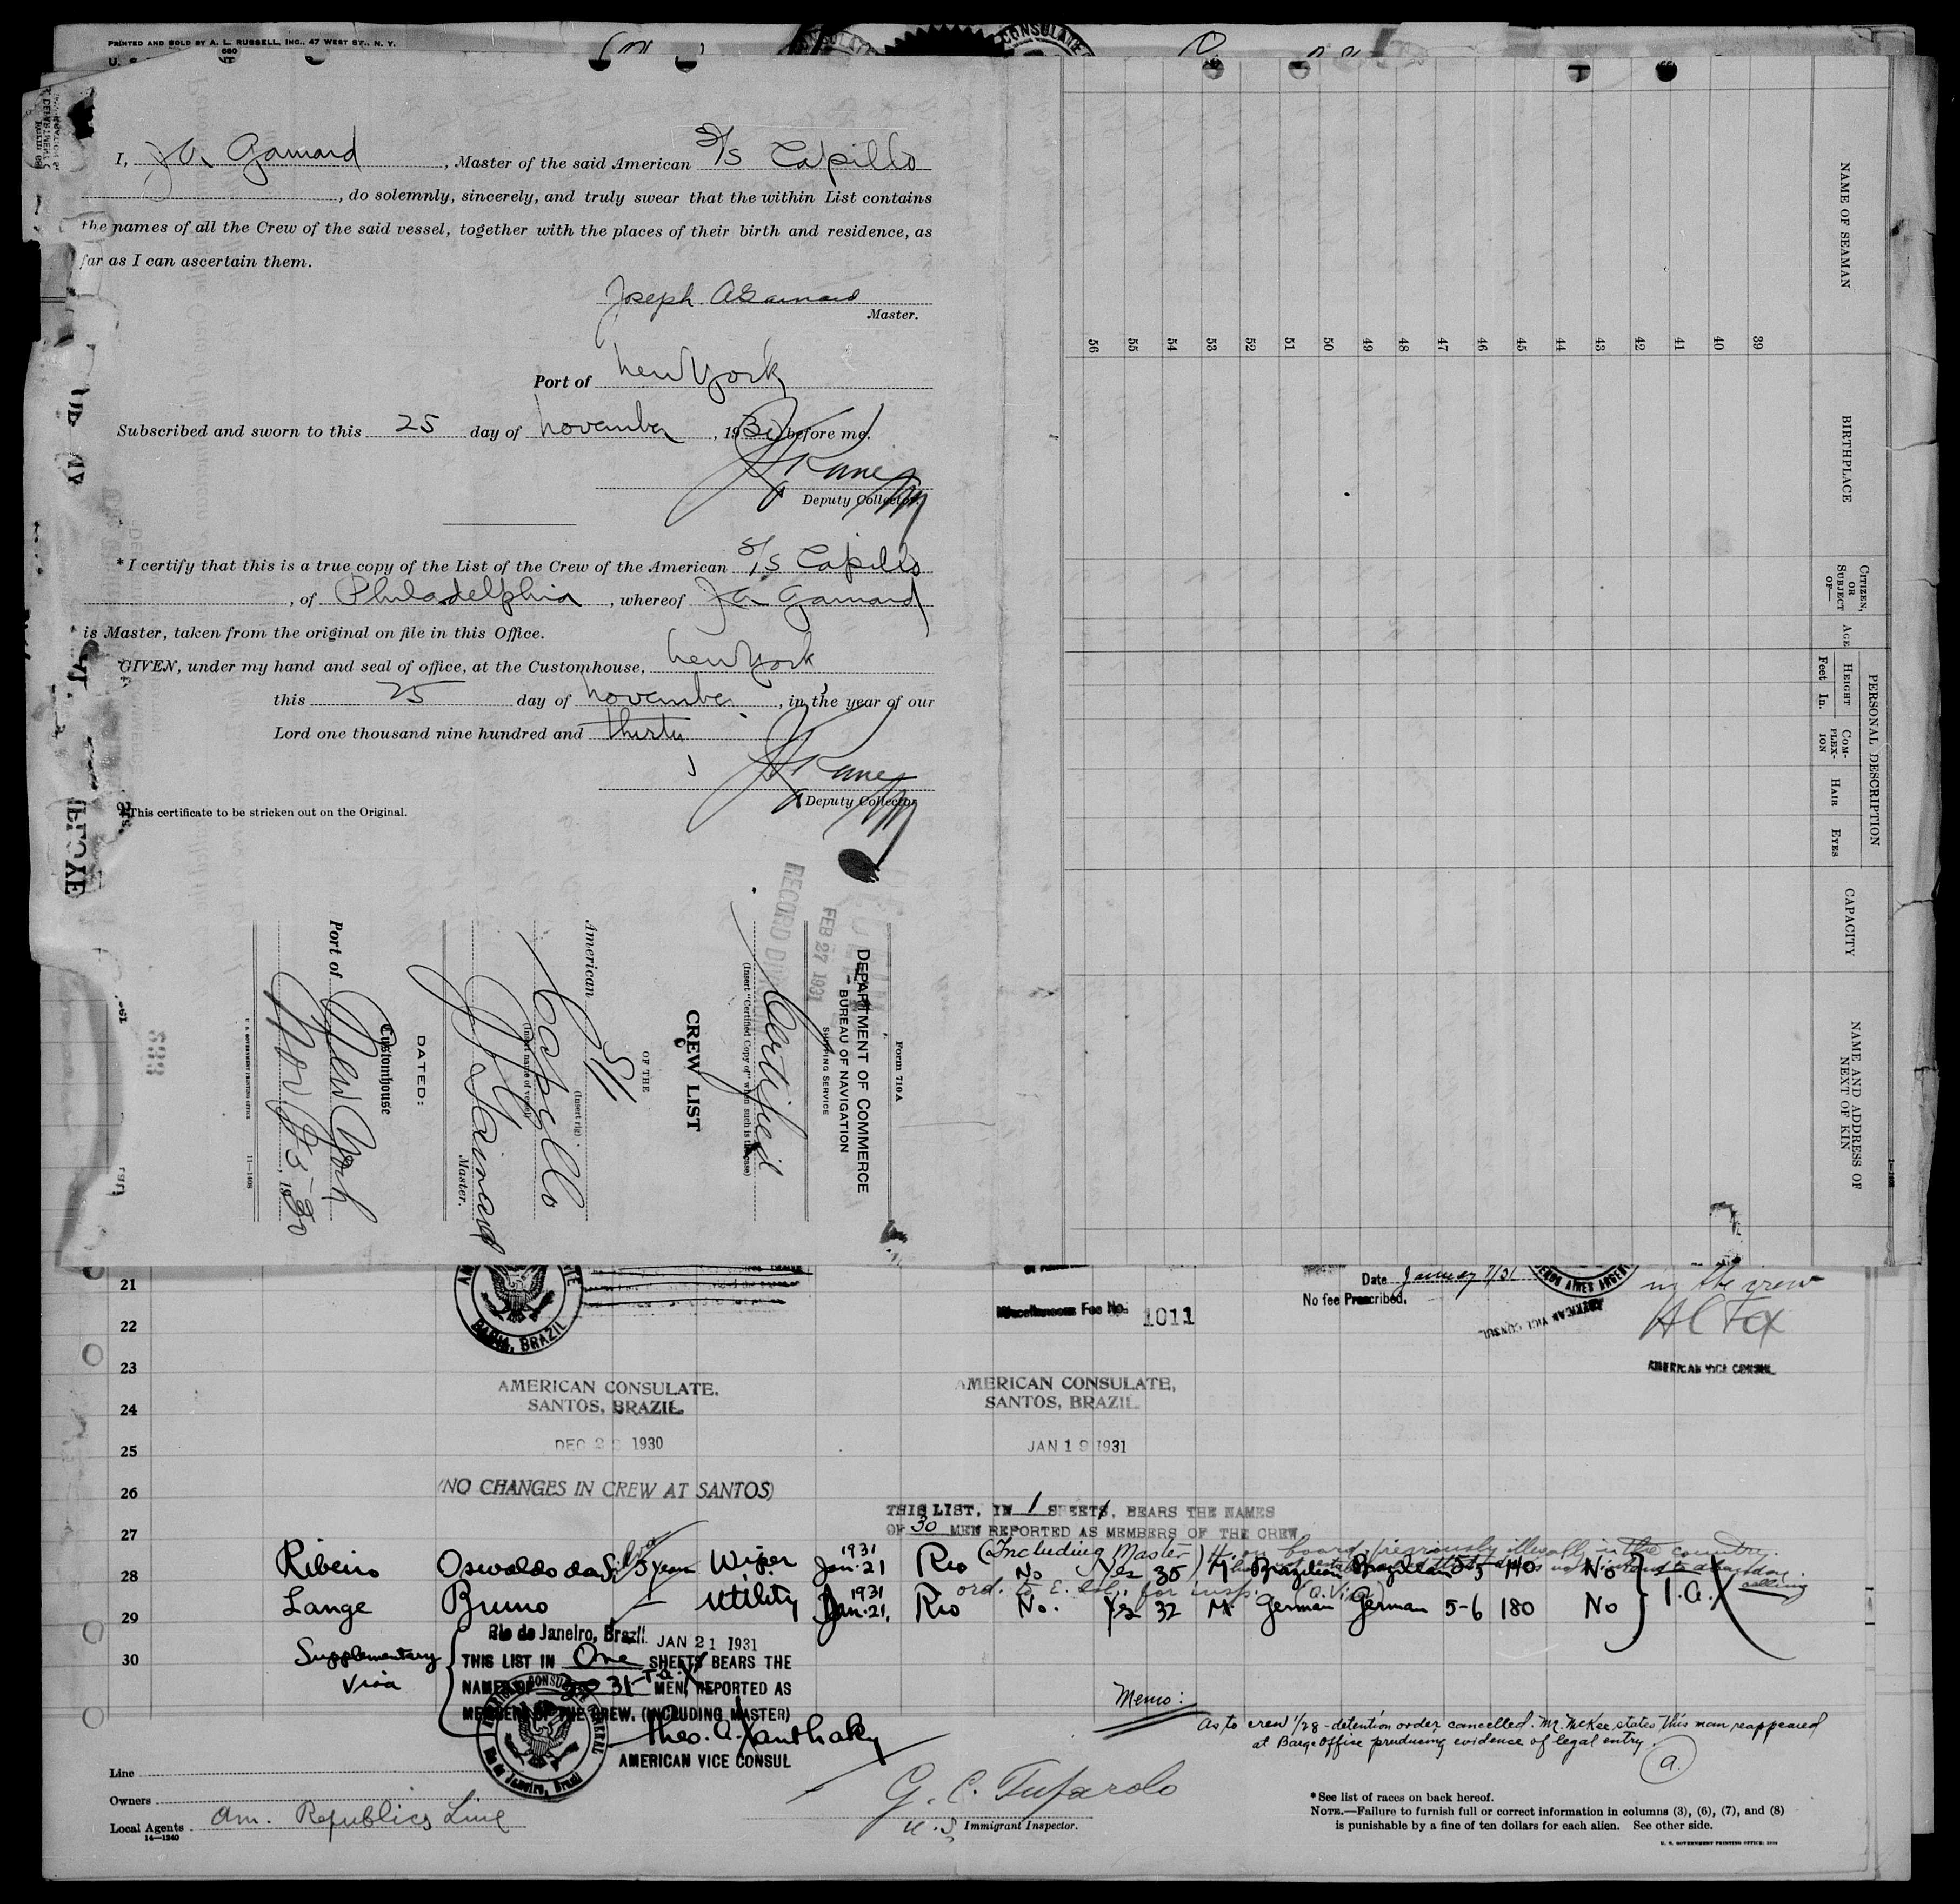 PRINTED AND SOLD BY A. L. RUSSELL, INC., 47 WEST ST., N. Y.
680
CONSULATE
I, J A. Gainard, Master of the said American S/S Capillo
, do solemnly, sincerely, and truly swear that the within List contains
the names of all the Crew of the said vessel, together with the places of their birth and residence, as
far as I can ascertain them.
Joseph A Gainard
Master.
Port of New York
Subscribed and sworn to this 25 day of November, 1930 before me.
Deputy Collector.
*I certify that this is a true copy of the List of the Crew of the American S/S Capillo
, of Philadelphia, whereof J A Gainard
is Master, taken from the original on file in this Office.
GIVEN, under my hand and seal of office, at the Customhouse, New York
this 25 day of November, in the year of our
Lord one thousand nine hundred and thirty
Deputy Collector
*This certificate to be stricken out on the Original.
Form 710A
DEPARTMENT OF COMMERCE
BUREAU OF NAVIGATION
SHIPPING SERVICE
FEB 27 1931
RECORD
Certified
(Insert "Certified Copy of" when such is the case)
CREW LIST
OF THE
American S/S
(Insert rig)
Capillo
(Insert name of vessel)
J A Gainard
Master.
DATED:
Customhouse
Port of New York
Nov 25, 1930
U. S. GOVERNMENT PRINTING OFFICE 11—1408
NAME OF SEAMAN
BIRTHPLACE
CITIZEN, OR SUBJECT OF—
AGE
PERSONAL DESCRIPTION
HEIGHT
Feet In.
COMPLEXION
HAIR
EYES
CAPACITY
NAME AND ADDRESS OF NEXT OF KIN
39
40
41
42
43
44
45
46
47
48
49
50
51
52
53
54
55
56
21
22
23
24
25
26
27
28
29
30
BAHIA, BRAZIL
Miscellaneous Fee No. 1011
Date January 7/31
No fee Prescribed.
BUENOS AIRES ARGEN
AMERICAN VICE CONSUL
in the crew
AMERICAN VICE CONSUL
AMERICAN CONSULATE,
SANTOS, BRAZIL.
DEC 1930
(NO CHANGES IN CREW AT SANTOS)
AMERICAN CONSULATE,
SANTOS, BRAZIL
JAN 19 1931
THIS LIST, IN 1 SHEETS, BEARS THE NAMES
OF 30 MEN REPORTED AS MEMBERS OF THE CREW
(Including Master)
on board, previously illegally in the country.
Ribeiro Oswaldo da Silva 5 years Wiper 1931 Jan. 21 Rio No Yes 35 M Brazilian Brazilian 5-5 140 No
ord. to E. Isl., for insp.
Lange Bruno Utility 1931 Jan. 21, Rio No. Yes 32 M. German German 5-6 180 No
T.a.X
Supplementary
Visa
Rio de Janeiro, Brazil. JAN 21 1931
THIS LIST IN One SHEETS BEARS THE
NAMES OF 31 MEN, REPORTED AS
MEMBERS OF THE CREW. (INCLUDING MASTER)
Theo. A. Xanthaky
AMERICAN VICE CONSUL
Rio de Janeiro, Brazil
Memo:
As to crew 1/28 - detention order cancelled. Mr. McKee states this man reappeared
at Barge Office producing evidence of legal entry.
a.
Line
Owners
Local Agents Am. Republics Line
14—1240
G. C. Tufarolo
U. S. Immigrant Inspector.
*See list of races on back hereof.
NOTE.—Failure to furnish full or correct information in columns (3), (6), (7), and (8)
is punishable by a fine of ten dollars for each alien. See other side.
U. S. GOVERNMENT PRINTING OFFICE